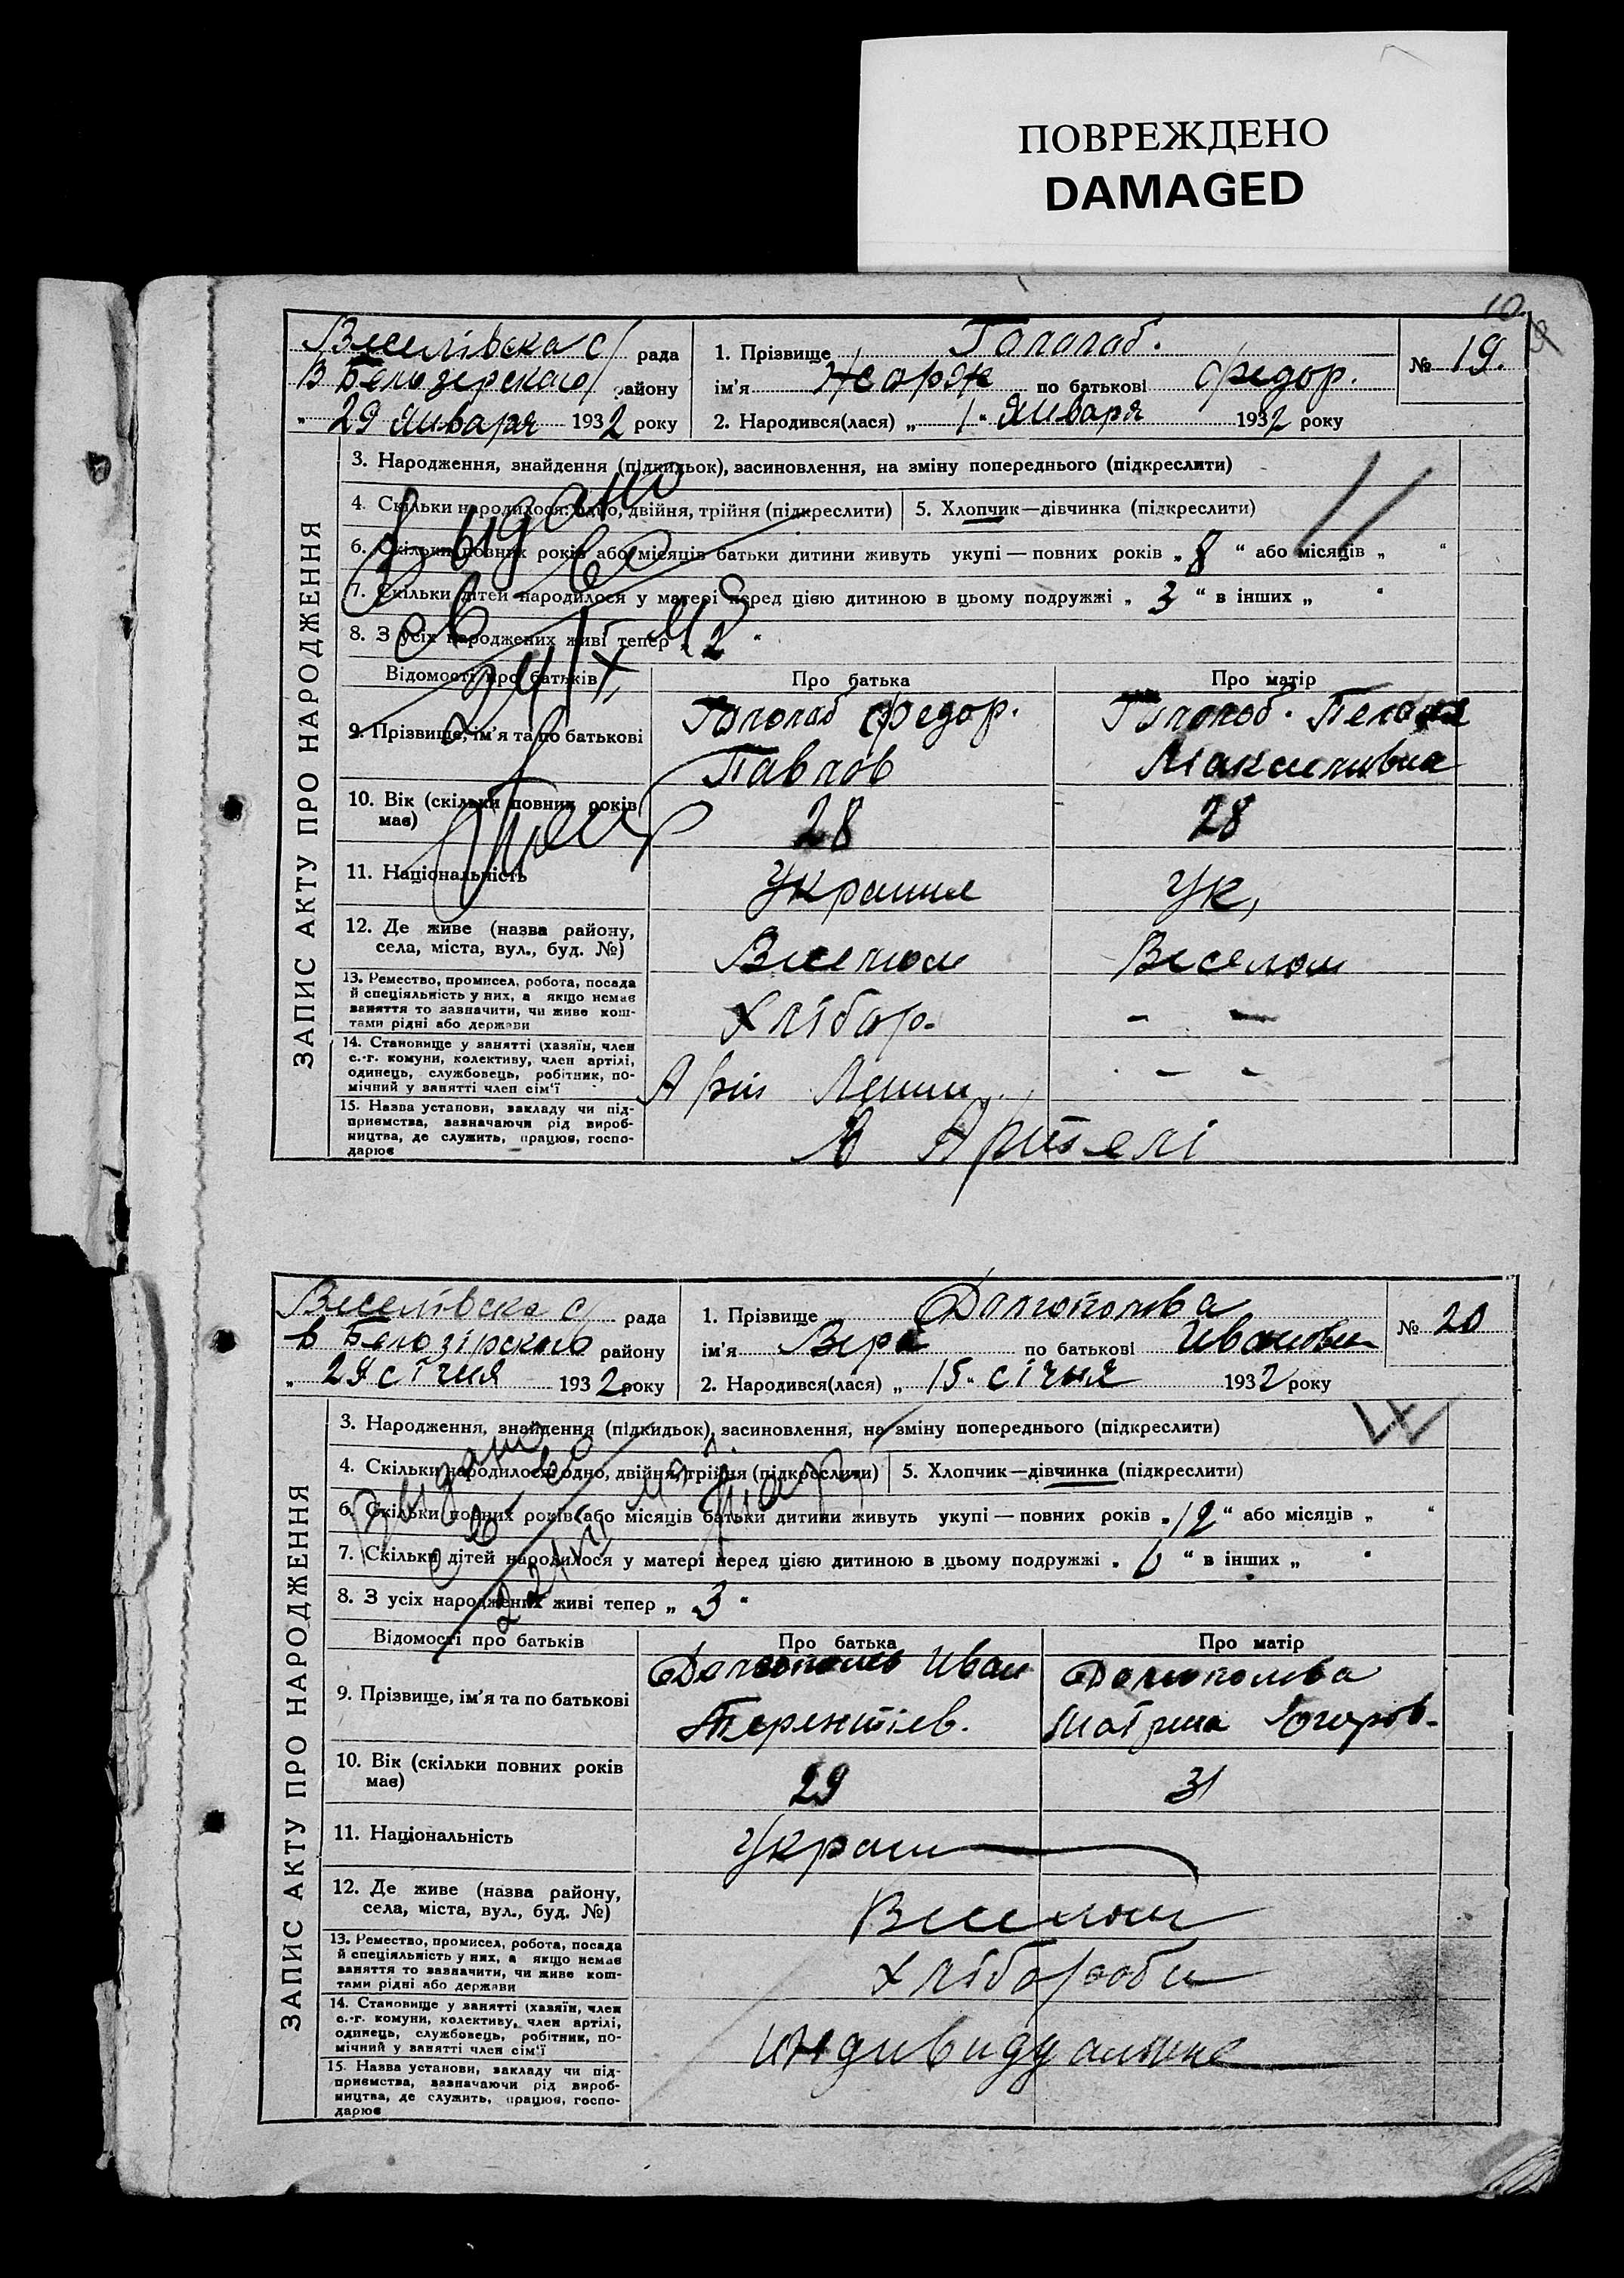 ПОВРЕЖДЕНО
DAMAGED
10.
Веселівска с/ рада
В Белозерского району
„ 29 Января 1932 року
1. Прізвище Гололоб.
ім'я Жорж по батькові Федор.
2. Народився(лася) „ 1 " Января 1932 року
№ 19.
ЗАПИС АКТУ ПРО НАРОДЖЕННЯ
3. Народження, знайдення (підкидьок), засиновлення, на зміну попереднього (підкреслити)
4. Скільки народилося: одно, двійня, трійня (підкреслити)
5. Хлопчик—дівчинка (підкреслити)
6. Скільки повних років або місяців батьки дитини живуть укупі — повних років „ 8 “ або місяців „ “
7. Скільки дітей народилося у матері перед цією дитиною в цьому подружжі „ 3 “ в інших „ “
8. З усіх народжених живі тепер „ 2 “
Видано
св во
Відомості про батьків
Про батька
Про матір
9. Прізвище, ім'я та по батькові
Гололоб Федор.
Павлов
Гололоб.
Максимовна
10. Вік (скільки повних років має)
28
28
11. Національність
Украинц
Ук,
12. Де живе (назва району, села, міста, вул., буд. №)
Веселом
Веселом
13. Ремество, промисел, робота, посада й спеціяльність у них, а якщо немає заняття то зазначити, чи живе коштами рідні або держави
Хлібор.
– –
14. Становище у занятті (хазяїн, член с.-г. комуни, колективу, член артілі, одинець, службовець, робітник, помічний у занятті член сім'ї
– –
15. Назва установи, закладу чи підприємства, зазначаючи рід виробництва, де служить, працює, господарює
В Артелі
Веселівска с/ рада
в Белозірского району
„ 29 січня 1932 року
1. Прізвище Долгополова
ім'я Вера по батькові Ивановн
2. Народився(лася) „ 15 " січня 1932 року
№ 20
ЗАПИС АКТУ ПРО НАРОДЖЕННЯ
3. Народження, знайдення (підкидьок), засиновлення, на зміну попереднього (підкреслити)
4. Скільки народилося: одно, двійня, трійня (підкреслити)
5. Хлопчик—дівчинка (підкреслити)
6. Скільки повних років або місяців батьки дитини живуть укупі — повних років „ 12 “ або місяців „ “
7. Скільки дітей народилося у матері перед цією дитиною в цьому подружжі „ 6 “ в інших „ “
8. З усіх народжених живі тепер „ 3 “
Видано
св во
Відомості про батьків
Про батька
Про матір
9. Прізвище, ім'я та по батькові
Долгополов Иван
Терентіев.
Долгополова
Матрина Егоров-
10. Вік (скільки повних років має)
29
31
11. Національність
Украин
12. Де живе (назва району, села, міста, вул., буд. №)
Веселом
13. Ремество, промисел, робота, посада й спеціяльність у них, а якщо немає заняття то зазначити, чи живе коштами рідні або держави
Хлібороби
14. Становище у занятті (хазяїн, член с.-г. комуни, колективу, член артілі, одинець, службовець, робітник, помічний у занятті член сім'ї
индивидуальне
15. Назва установи, закладу чи підприємства, зазначаючи рід виробництва, де служить, працює, господарює